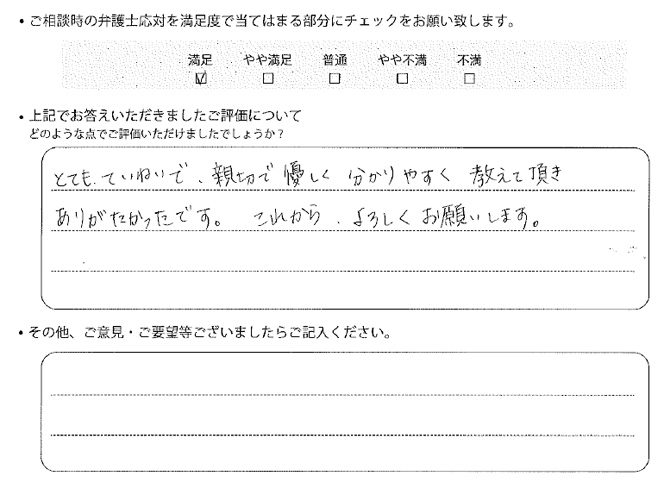 ・ご相談時の弁護士応対を満足度で当てはまる部分にチェックをお願い致します。
満足 やや満足 普通 やや不満 不満
☑ ☐ ☐ ☐ ☐
・上記でお答えいただきましたご評価について
どのような点でご評価いただけましたでしょうか？
とても、ていねいで、親切で優しく 分かりやすく 教えて頂き
ありがたかったです。 これから、よろしくお願いします。
・その他、ご意見・ご要望等ございましたらご記入ください。